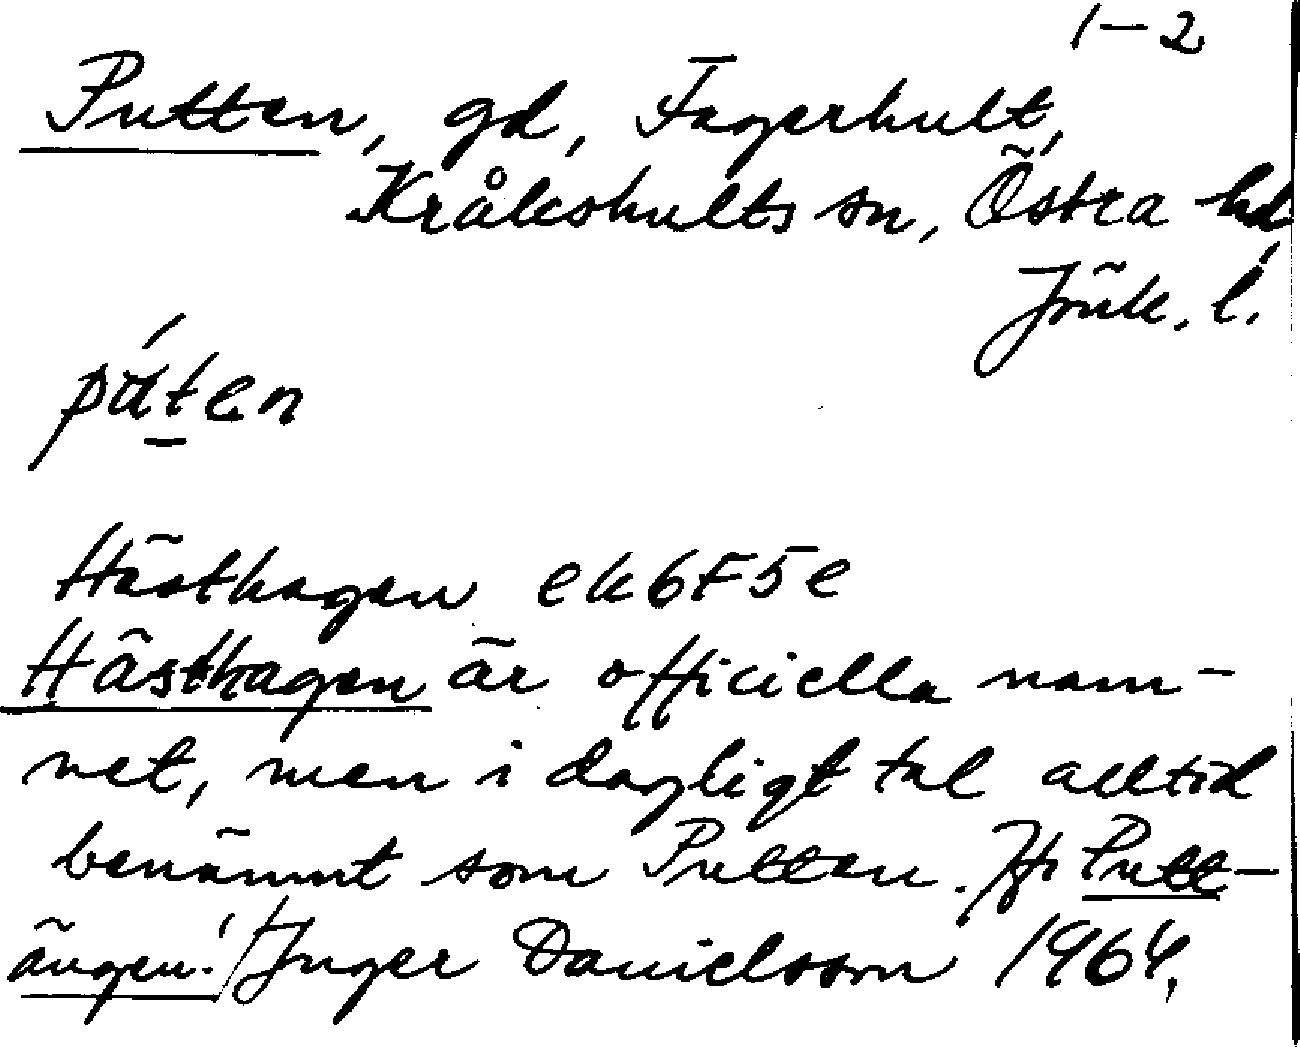 1–2
Putten, gd, Fagerhult,
Kråkshults sn, Östra hd,
Jönk. l.
pút̲en
Hästhagen ek6F5e
Hästhagen är officiella nam-
net, men i dagligt tal alltid
benämnt som Putten. Jfr Putt-
ängen! Inger Danielsson 1964.